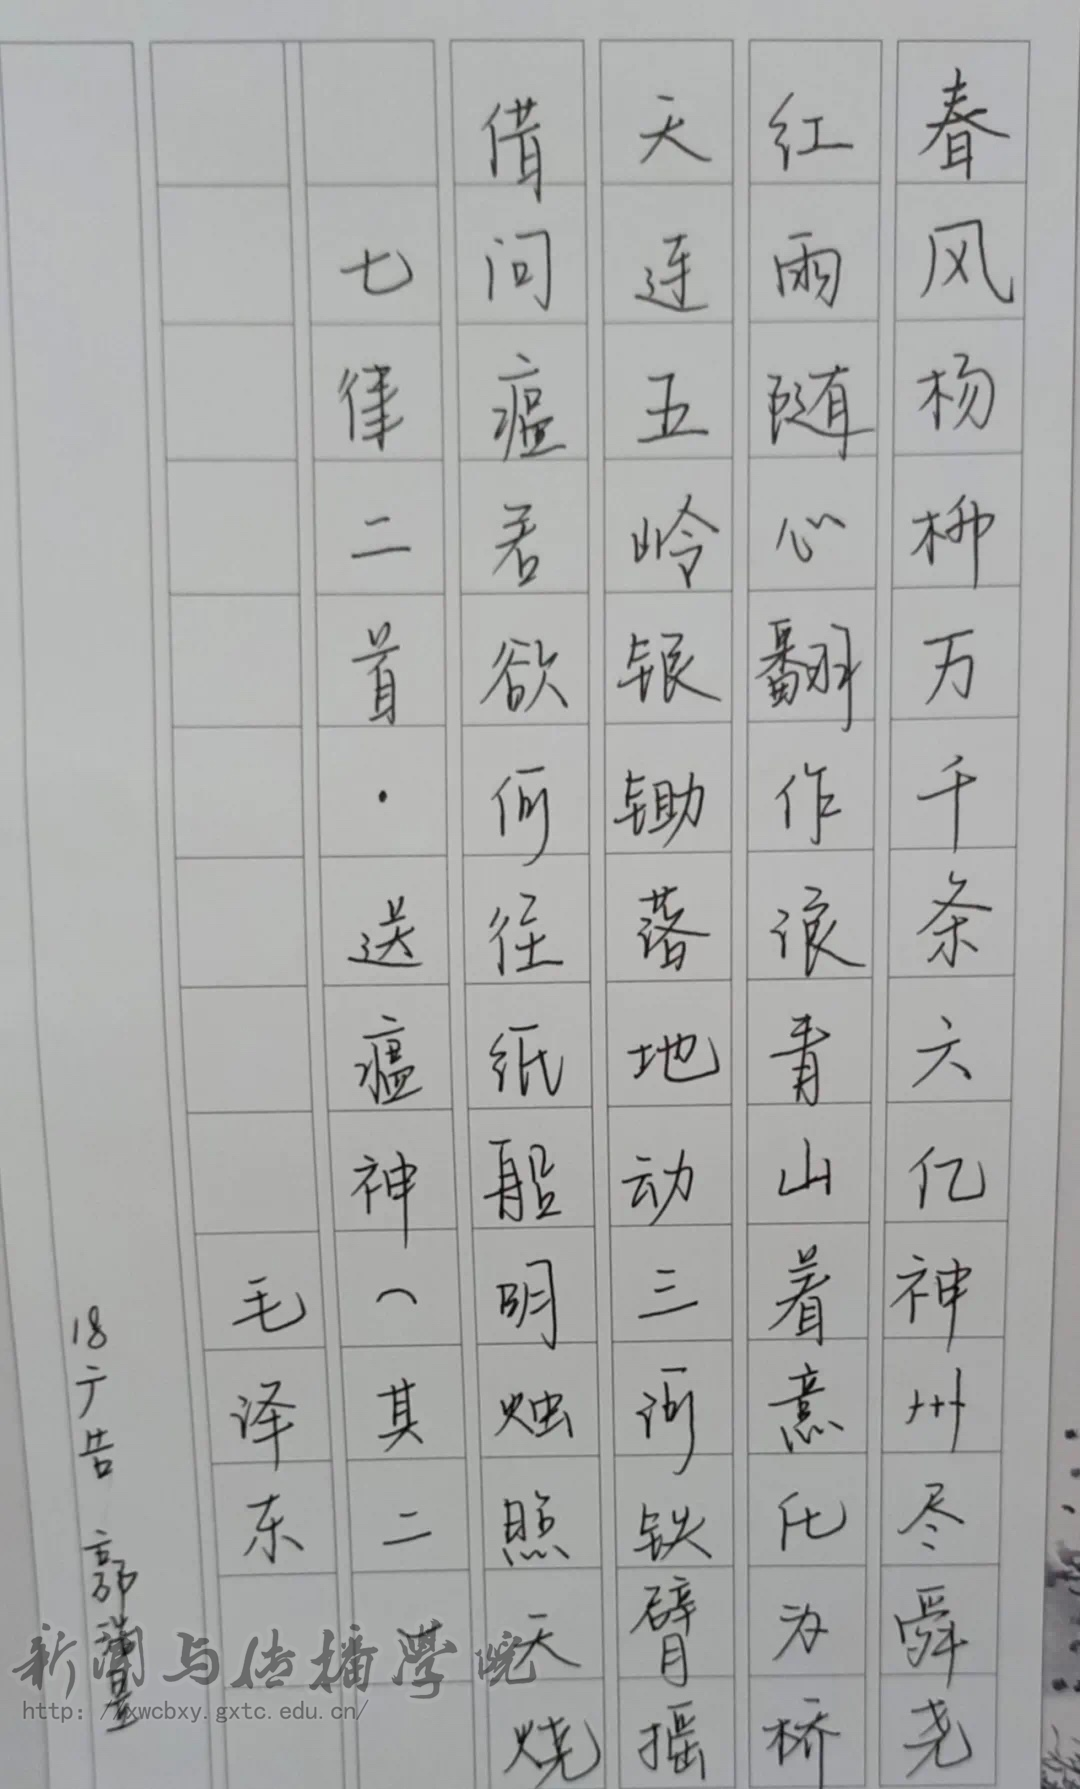 春风杨柳万千条六亿神州尽舜尧
红雨随心翻作浪青山着意化为桥
天连五岭银锄落地动三河铁臂摇
借问瘟君欲何往纸船明烛照天烧
七律二首·送瘟神(其二
毛泽东
18广告 郭
新闻与传播学院
http://xwcbxy.gxtc.edu.cn/